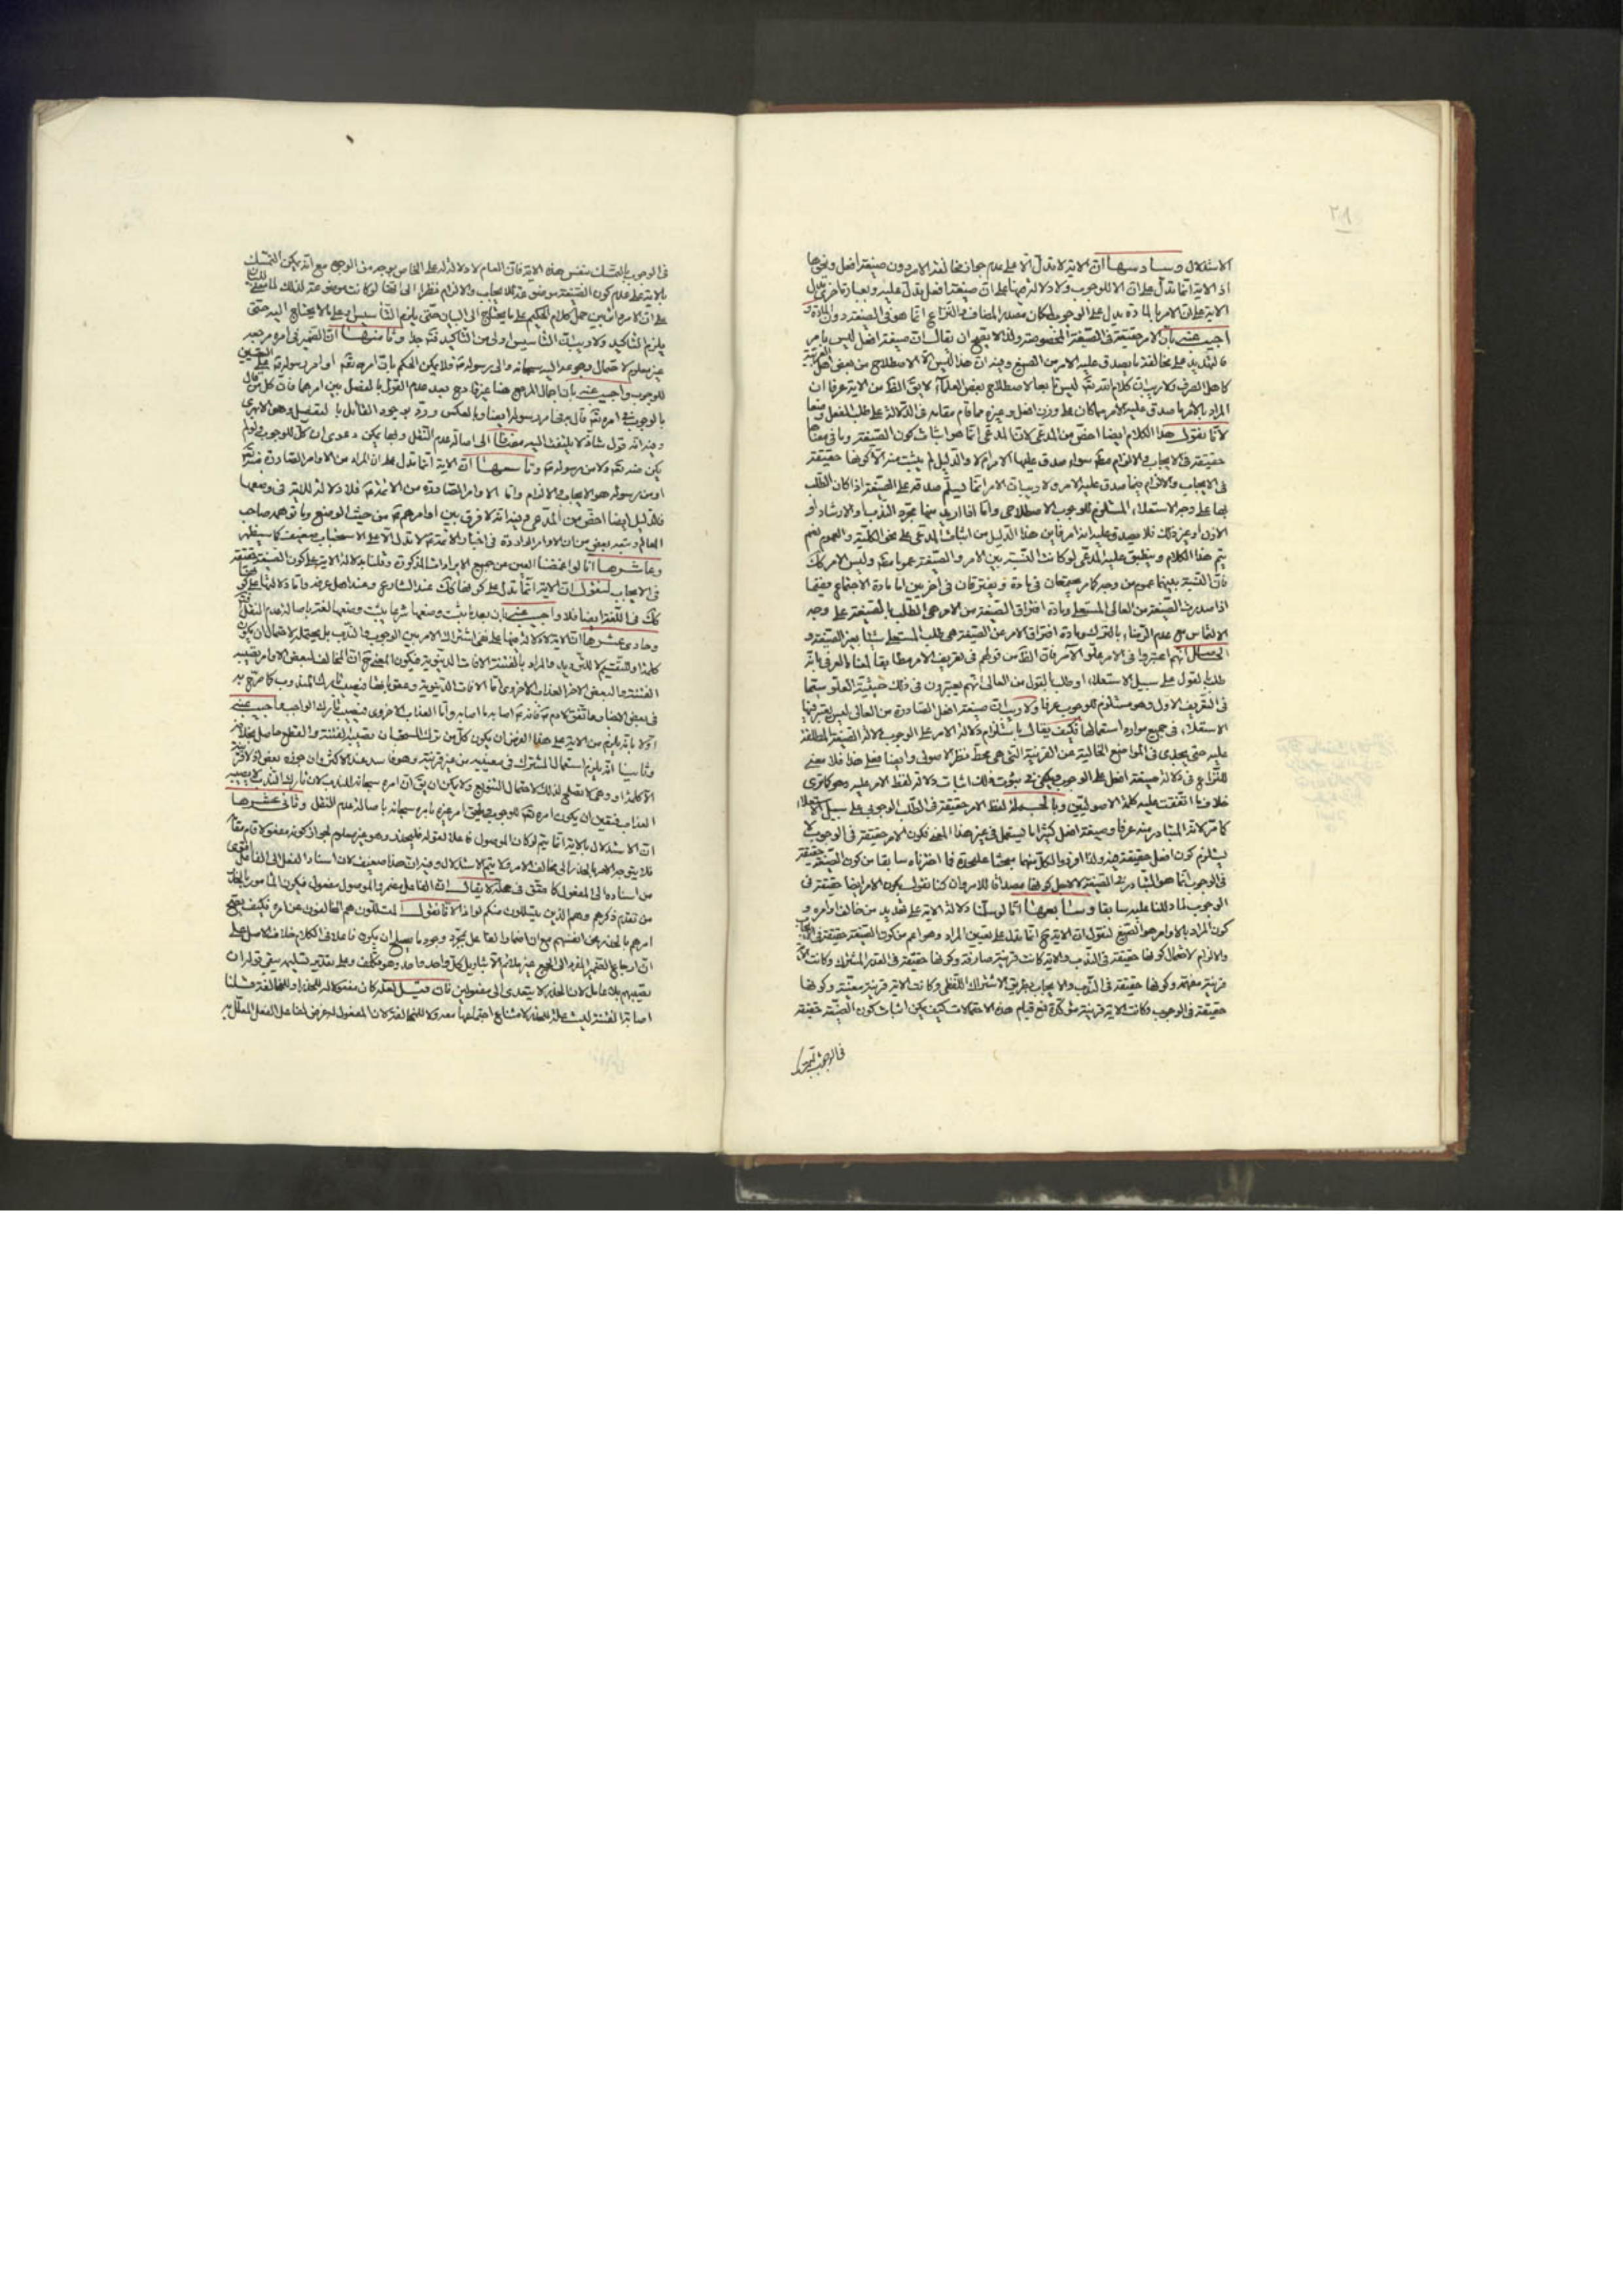 ٢١
الاستدلال وسادسها ان الاية لا تدل الا على عدم جواز مخالفة الامر دون صيغة افعل ونحوها
اذ الاية انما تدل على ان الامر للوجوب ولا دلالة فيها على ان صيغة افعل تدل عليه وبعبارة اخرى تدل
الاية على ان الامر بالمادة يدل على الوجوب لمكان مصدر المضاف والنزاع انما هو في الصيغة دون المادة و
اجيب عنه بان الامر حقيقة في الصيغة المخصوصة ولذا لا يصح ان يقال ان صيغة افعل ليس بامر
فالتهديد على مخالفة ما يصدق عليه الامر من الصيغ وفيه ان هذا ليس الا الاصطلاح من بعض اهل العربية
كاهل الصرف ولا ريب ان كلام الله تعالى ليس تابعا لاصطلاح بعض العلماء لا يقال الظاهر من الاية عرفا ان
المراد بالامر ما صدق عليه الامر مما كان على وزن افعل وغيره مما قام مقامه في الدلالة على طلب الفعل
لانا نقول هذا الكلام ايضا اخص من المدعى لان المدعى انما هو اثبات كون الصيغة وما في معناها
حقيقة في الايجاب والالزام مطلقا سواء صدق عليها الامر ام لا والدليل لم يثبت منه الا كونها حقيقة
في الايجاب والالزام فيما صدق عليه الامر ولا ريب ان الامر انما يسلم صدقه على الصيغة اذا كان الطلب
بها على وجه الاستعلاء المستلزم للوجوب الاصطلاحي واما اذا اريد منها مجرد الندب او الارشاد او
الاذن او غير ذلك فلا يصدق عليه انه امر فاين هذا الدليل من اثبات المدعى على نحو الكلية والعموم نعم
يتم هذا الكلام وينطبق عليه المدعى لو كانت النسبة بين الامر والصيغة عموما مطلقا وليس الامر كك
فان النسبة بينهما عموم من وجه كما يجتمعان في مادة ويفترقان في اخريين اما مادة الاجتماع ففيما
اذا صدرت الصيغة من العالي المستعلي ومادة افتراق الصيغة من الامر هي الطلب بالصيغة على وجه
الالتماس مع عدم الرضاء بالترك ومادة افتراق الامر عن الصيغة هي طلب المستعلي شيئا بغير الصيغة و
انهم اعتبروا في الامر علو الآمر فان الظاهر من قولهم في تعريف الامر مطابقا لمعناه العرفي انه
طلب بالقول على سبيل الاستعلاء او طلب بالقول من العالي انهم يعتبرون في ذلك حيثية العلو سيما
في التعريف الاول وهو مستلزم للوجوب عرفا ولا ريب ان صيغة افعل الصادرة من العالي ليس يعتبر فيها
الاستعلاء في جميع موارد استعمالها فكيف يقال باستلزام دلالة الامر على الوجوب لدلالة الصيغة المطلقة
عليه حتى يجدي في المواضع الخالية عن القرينة التي هي محط نظر الاصولي وايضا فعلى هذا فلا معنى
للنزاع في دلالة صيغة افعل على الوجوب ويكفي في ثبوت ذلك اثبات دلالة لفظ الامر عليه وهو كما ترى
خلاف ما اتفقت عليه كلمة الاصوليين وبالجملة لفظ الامر حقيقة في الطلب الوجوبي على سبيل الاستعلاء
كما مر لانه المتبادر منه عرفا وصيغة افعل كثيرا ما يستعمل في غير هذا المعنى فكون الامر حقيقة في الوجوب لا
يستلزم كون افعل حقيقة فيه ولذا افردوا لكل منهما مبحثا على حدة فما اخترناه سابقا من كون الصيغة حقيقة
في الوجوب انما هو لتبادره من الصيغة لا لاجل كونها مصداقا للامر وان كنا نقول بكون الامر ايضا حقيقة في
الوجوب لما دللنا عليه سابقا وسابعها انا لو سلمنا دلالة الاية على تهديد من خالف اوامره و
كون المراد بالاوامر هو الصيغ لنقول ان الاية انما تدل على تعيين المراد وهو اعم من كون الصيغة حقيقة في الايجاب
والالزام لاحتمال كونها حقيقة في الندب والاية كانت قرينة صارفة وكونها حقيقة في القدر المشترك وكانت الاية
قرينة مفهمة وكونها حقيقة في الندب والايجاب بطريق الاشتراك اللفظي وكانت الاية قرينة معينة وكونها
حقيقة في الوجوب وكانت الاية قرينة مؤكدة فمع قيام هذه الاحتمالات كيف يمكن اثبات كون الصيغة حقيقة
في الوجوب
في الوجوب بالتمسك بنفس هذه الاية فان العام لا دلالة له على الخاص بوجه من الوجوه مع انه يمكن التمسك
بالاية على عدم كون الصيغة موضوعة للايجاب والالزام نظرا الى انها لو كانت موضوعة لذلك لما
على ان الامر حمل كلام الحكيم على ما يحتاج الى البيان حتى يلزم التأسيس او على ما لا يحتاج اليه حتى
يلزم التاكيد ولا ريب ان التأسيس اولى من التاكيد وثامنها ان الضمير في امره مرجعه
غير معلوم لاحتمال رجوعه اليه سبحانه والى رسوله فلا يمكن الحكم بان امره تعالى او امر رسوله على
للوجوب واجيب عنه بان اجمال المرجع هنا غير قادح بعد عدم القول بالفصل بين امرهما فان كل من قال
بالوجوب في امره تعالى قال به في امر رسوله ايضا وبالعكس ورد بوجود القائل بالتفصيل وهو الابهري
وفيه انه قول شاذ لا يلتفت اليه مضافا الى اصالة عدم النقل وبها يمكن دعوى ان كل للوجوب ولو لم
يكن منه تعالى ولا من رسوله وتاسعها ان الاية انما تدل على ان المراد من الاوامر الصادرة منه تعالى
او من رسوله هو الايجاب والالزام واما الاوامر الصادرة من الائمة فلا دلالة للاية في وضعها
فالدليل ايضا اخص من المدعى وفيه انه لا فرق بين اوامرهم من حيث الوضع وما توهمه صاحب
المعالم وتبعه بعض من ان الاوامر الواردة في اخبار الائمة لا تدل الا على الاستحباب ضعيف كما سيظهر
وعاشرها انا لو اغمضنا العين عن جميع الايرادات المذكورة وقلنا بدلالة الاية على كون الصيغة حقيقة
في الايجاب لنقول ان الاية انما تدل على كونها كك عند الشارع وعند اهل عرفه واما دلالتها على كونها
كك في اللغة ايضا فلا واجيب عنه بان بعد ما يثبت وضعها شرعا يثبت وضعها لغة باصالة عدم النقل
وحادي عشرها ان الاية لا دلالة فيها على نفي اشتراك الامر بين الوجوب والندب بل يحتمله لاحتمال ان يكون
كلمة او للتقسيم لا للترديد والمراد بالفتنة الافات الدنيوية فيكون المعنى ح ان المخالف لبعض الاوامر تصيبه
الفتنة والبعض الاخر العذاب الاخروي اما الافات الدنيوية وعقوباتها فيصيب تارك المندوب كما صرح به
في بعض الاخبار واما العذاب الاخروي فيصيب تارك الواجب واجيب عنه
اولا بانه يلزم من الاية على هذا الفرض ان يكون كل من ترك المستحبات تصيبه الفتنة والقطع حاصل بخلافه
وثانيا انه يلزم استعمال المشترك في معنييه من غير قرينة وهو فاسد عند الاكثر وان جوزه بعض اذ لا قرينة
الا كلمة او وهي لا تصلح لذلك لاحتمال التنويع ولا يمكن ان يقال ان امره سبحانه للندب لان تارك الندب لا يصيبه
العذاب فتعين ان يكون امره تعالى للوجوب ويلحق امر غيره بامره سبحانه باصالة عدم النقل وثاني عشرها
ان الاستدلال بالاية انما يتم لو كان الموصول فاعلا لقوله فليحذر وهو غير معلوم لجواز كونه مفعولا قام مقامه
فلا يتوجه الامر بالحذر الى مخالف الامر فلا يتم الاستدلال وفيه ان هذا ضعيف لان اسناد الفعل الى الفاعل اقوى
من اسناده الى المفعول كما حقق في محله لا يقال ان الفاعل مضمر والموصول مفعول فيكون المأمور بالحذر
من تقدم ذكرهم وهم الذين يتسللون منكم لواذا لانا نقول المتسللون هم المخالفون عن امره فكيف يصح
امرهم بالحذر عن انفسهم مع ان اضمار الفاعل بمجرد وجود ما يصلح ان يكون فاعلا في الكلام خلاف الاصل على
ان ارجاع الضمير المفرد الى الجمع غير ملائم الا بتاويل كل واحد واحد وهو تكلف وعلى تقدير تسليمه يبقى قوله ان
تصيبهم بلا عامل لان الحذر لا يتعدى الى مفعولين فان قيل لعله كان مفعولا له للحذر او للمخالفة قلنا
اصابة الفتنة ليست علة للحذر لامتناع اجتماعهما معه ولا للمخالفة لان المفعول له غرض لفاعل الفعل المعلل به